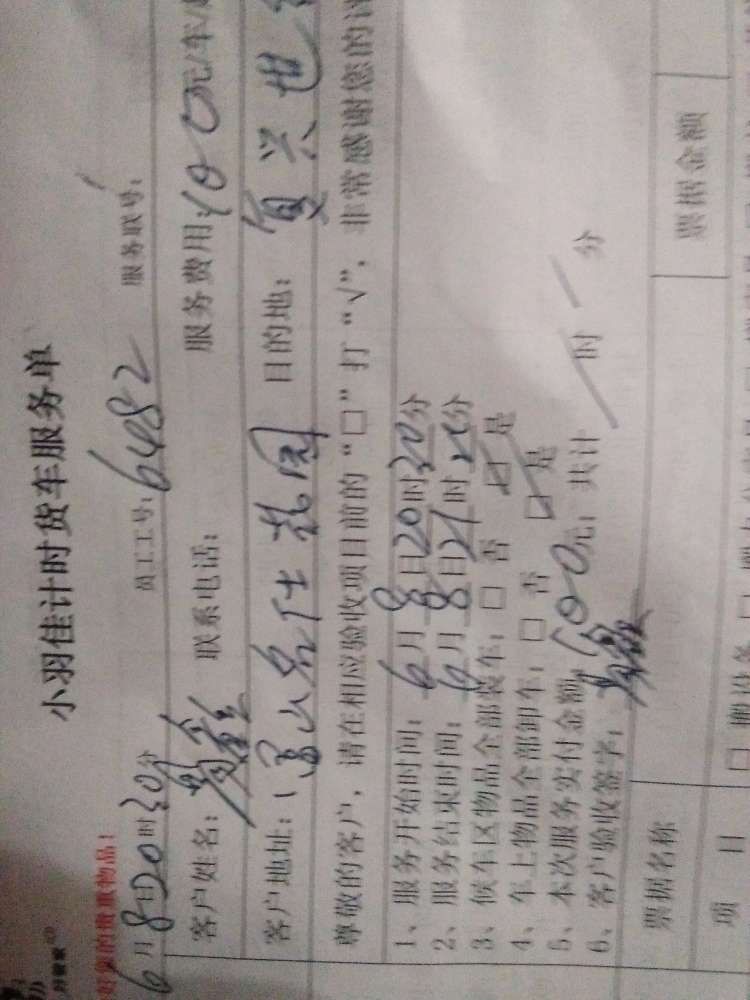 小羽佳计时货车服务单
好您的贵重物品：
6月8日20时30分 员工工号：6482 服务联号：
客户姓名： 联系电话： 服务费用：100元/车/
客户地址：名仕花园 目的地：复兴世
尊敬的客户，请在相应验收项目前的“□”打“√”，非常感谢您的
1、服务开始时间：6月8日20时30分
2、服务结束时间：6月8日21时分
3、候车区物品全部装车；□否 ☑是
4、车上物品全部卸车；□否 ☑是
5、本次服务实付金额：600元；共计 / 时 / 分
6、客户验收签字：
票据名称 票据金额
项 目